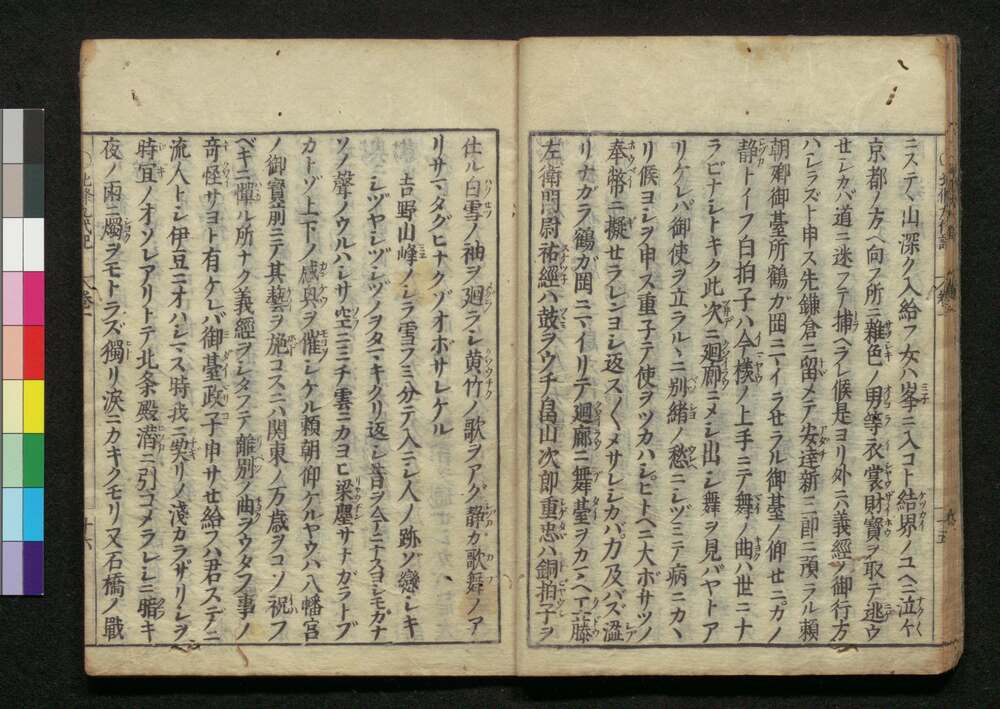 ニステ、山深ク入給フ女ハ峯ニ入コト結界ノユヘニ泣々
京都ノ方ヘ向フ所ニ雜色ノ男等衣裳財寳ヲ取テ逃ウ
セシカバ道ニ迷フテ捕ヘラレ候是ヨリ外ニハ義經ノ御行方
ハシラズト申ス先鎌倉ニ留メテ安達新三郎ニ預ラル頼
朝卿御臺所鶴ガ岡ニマイラセラル御臺ノ仰セニカノ
静トイフ白拍子ハ今樣ノ上手ニテ舞ノ曲ハ世ニナ
ラビナシトキク此次ニ廻廊ニメシ出シ舞ヲ見バヤトア
リケレバ御使ヲ立ラル、ニ別緒ノ愁ニシヅミテ病ニカヽ
リ候ヨシヲ申ス重子テ使ヲツカハシヒトヘニ大ボサツノ
奉幣ニ擬セラレンヨシ返ス〱メサレシカバ力及バズ澁
リナガラ鶴ガ岡ニマイリテ廻廊ニ舞臺ヲカマヘ工藤
左衛門尉祐經ハ鼓ヲウチ畠山次郎重忠ハ銅拍子ヲ
仕ル白雪ノ袖ヲ廻ラシ黄竹ノ歌ヲアグ静カ歌舞ノア
リサマタグヒナクゾオボサレケル
吉野山峰ノシラ雪フミ分テ入ニシ人ノ跡ゾ戀シキ
シヅヤシヅシヅノヲダマキクリ返シ昔ヲ今ニナスヨシモガナ
ソノ聲ノウルハシサ空ニミチ雲ニカヨヒ梁塵サナガラトブ
カトゾ上下ノ感興ヲ催シケル頼朝仰ケルヤウハ八幡宮
ノ御寳前ニテ其藝ヲ施コスニハ関東ノ万歳ヲコソ祝フ
ベキニ憚ル所ナク義經ヲシタフテ離別ノ曲ヲウタフ事ノ
奇怪サヨト有ケレバ御臺政子申サセ給フハ君スデニ
流人トシ伊豆ニオハシマス時我ニ契リノ淺カラザリシヲ
時宜ノオソレアリトテ北条殿潜ニ引コメラレシニ暗キ
夜ノ雨ニ燭ヲモトラズ獨リ涙ニカキクモリ又石橋ノ戰
北條九代記
卷一
十六